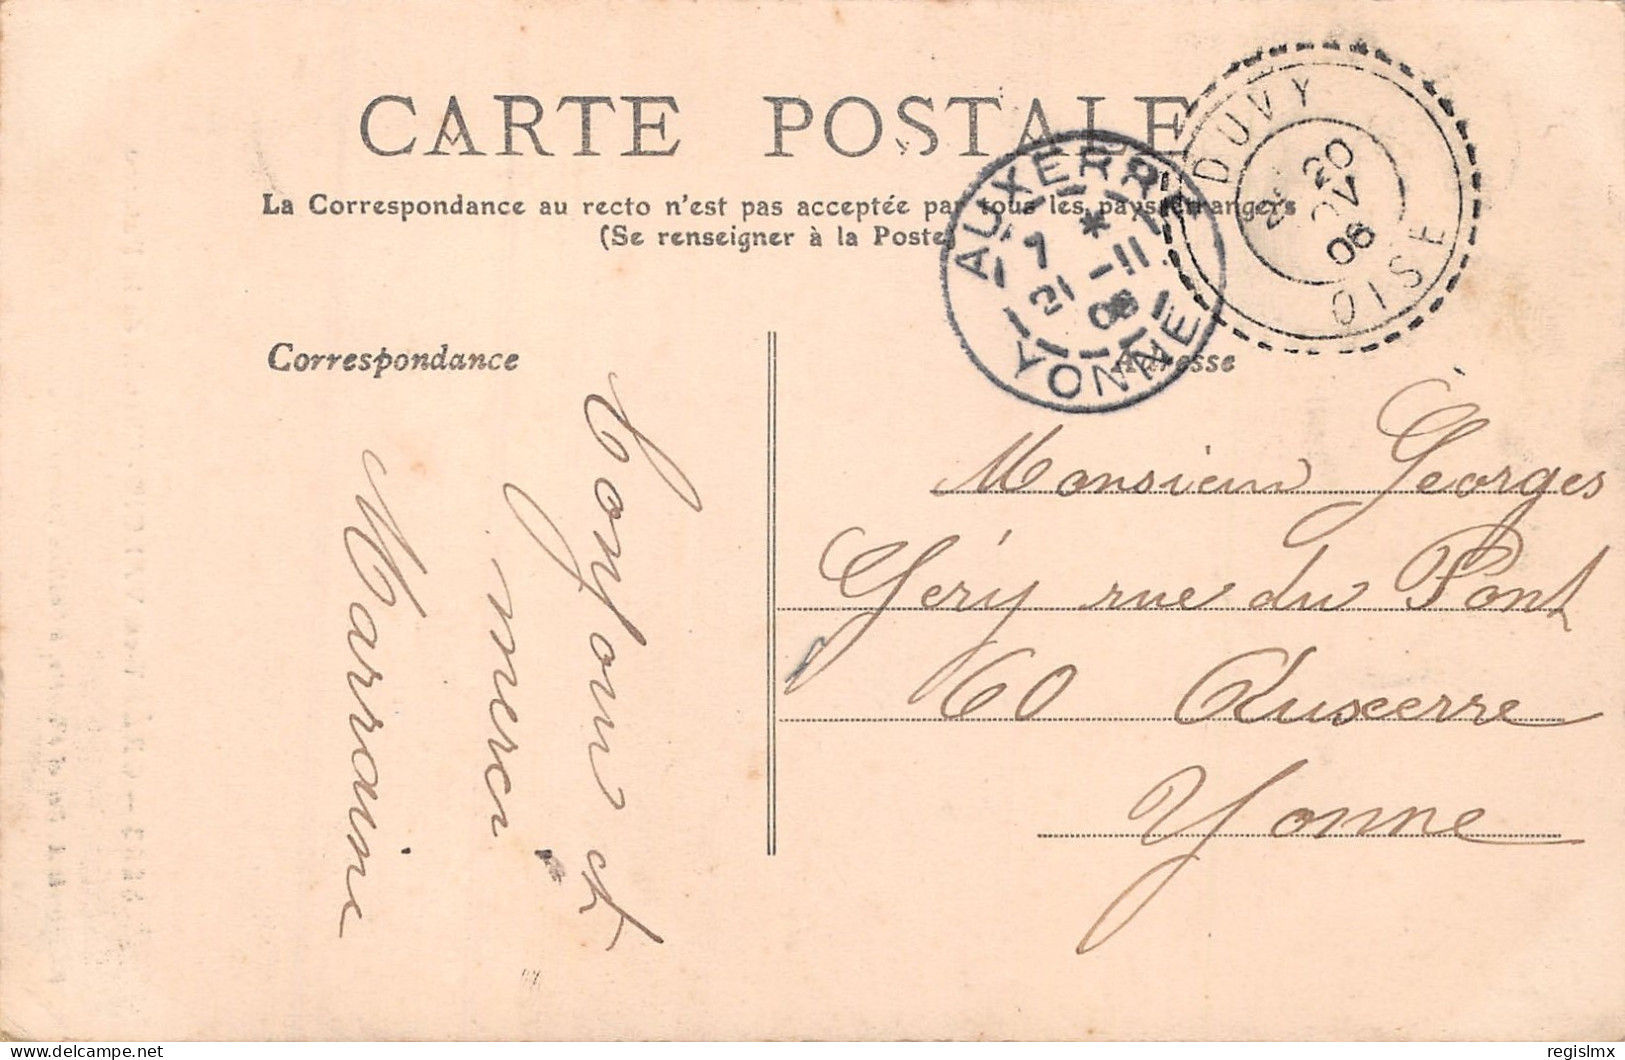 CARTE POSTALE
La Correspondance au recto n'est pas acceptée par tous les pays étrangers
(Se renseigner à la Poste)
DUVY
20
06
OISE
AUXERRE
7 * 21 -11 06
YONNE
Correspondance
Adresse
Bonjour et
merci
Marraine
Monsieur Georges
Géry rue du Pont
60 Auxerre
Yonne
regislmx